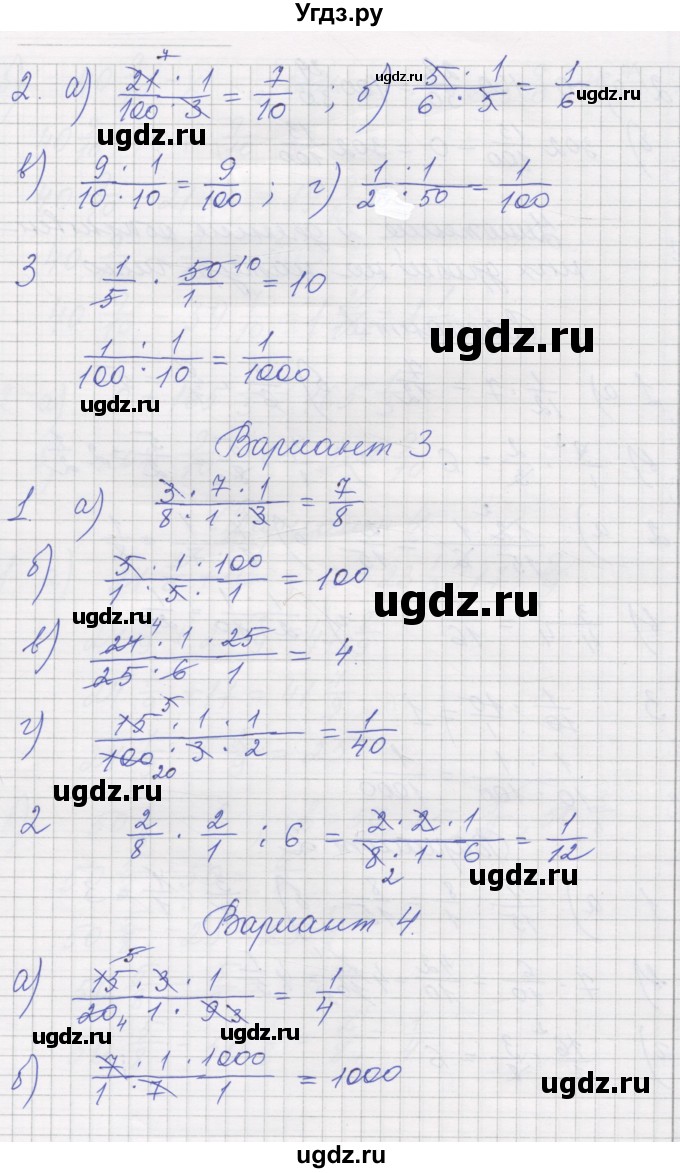 Угдз.ру
2. а) (21 · 1)/(100 · 3) = 7/10 ; б) (5 · 1)/(6 · 5) = 1/6
7
ugdz.ru
ugdz.ru
в) (9 · 1)/(10 · 10) = 9/100 ; г) (1 · 1)/(2 · 50) = 1/100
3 1/5 · 50/1 10 = 10
(1 · 1)/(100 · 10) = 1/1000
ugdz.ru
ugdz.ru
Вариант 3
1. а) (3 · 7 · 1)/(8 · 1 · 3) = 7/8
б) (5 · 1 · 100)/(1 · 5 · 1) = 100
ugdz.ru
ugdz.ru
в) (24 4 · 1 · 25)/(25 · 6 1) = 4.
г) (15 5 · 1 · 1)/(100 20 · 3 · 2) = 1/40
ugdz.ru
2 2/8 · 2/1 : 6 = (2 · 2 · 1)/(8 2 · 1 · 6) = 1/12
ugdz.ru
Вариант 4.
а) (15 5 · 3 · 1)/(20 4 1 · 9 3) = 1/4
ugdz.ru
ugdz.ru
б) (7 · 1 · 1000)/(1 · 7 1) = 1000
ugdz.ru
ugdz.ru